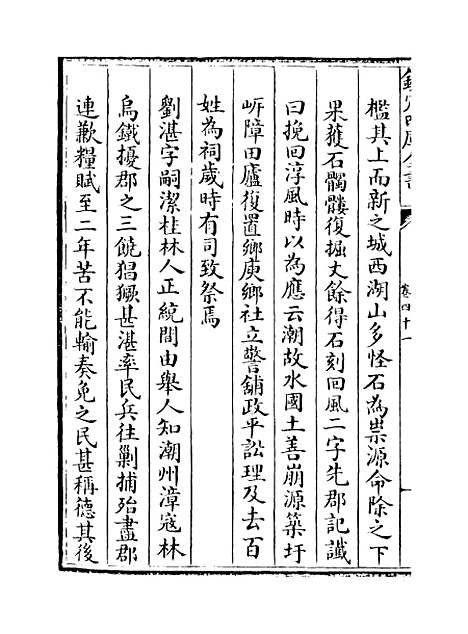 欽定四庫全書
卷四十一
檻其上而新之城西湖山多怪石為祟源命除之下
果獲石髑髏復掘丈餘得石刻回風二字先郡記讖
曰挽回淳風時以為應云潮故水國土善崩源築圩
岍障田廬復置鄉庾鄉社立警舖政平訟理及去百
姓為祠歲時有司致祭焉
劉湛字嗣潔桂林人正統間由舉人知潮州漳寇林
烏鐵擾郡之三饒猖獗甚湛率民兵往剿捕殆盡郡
連歉糧賦至二年苦不能輸奏免之民甚稱德其後